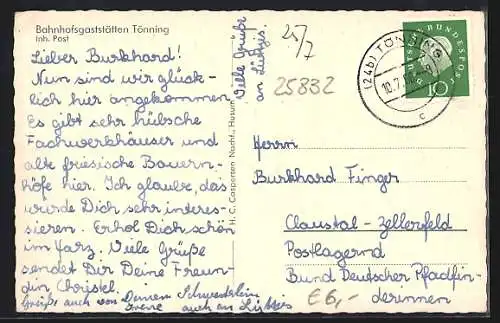 Bahnhofsgaststätten Tönning
Inh. Post
Lieber Burkhard!
Nun sind wir glück-
lich hier angekommen
Es gibt sehr hübsche
Fachwerkhäuser und
alte friesische Bauern-
höfe hier. Ich glaube, das
würde Dich sehr interes-
sieren. Erhol Dich schön
im Harz. Viele Grüße
sendet Dir Deine Freun-
din Christel.
Grüße auch von Deinem Schwesterlein
auch an
Viele Grüße
an
H. C. Caspersen Nachf., Husum
25/7
25832
DEUTSCHE BUNDESPOST
10
(24b) TÖNNING
10.7.
c
Herrn
Burkhard Finger
Claustal-Zellerfeld
Postlagernd
Bund Deutscher Pfadfin-
derinnen
€ 6,-